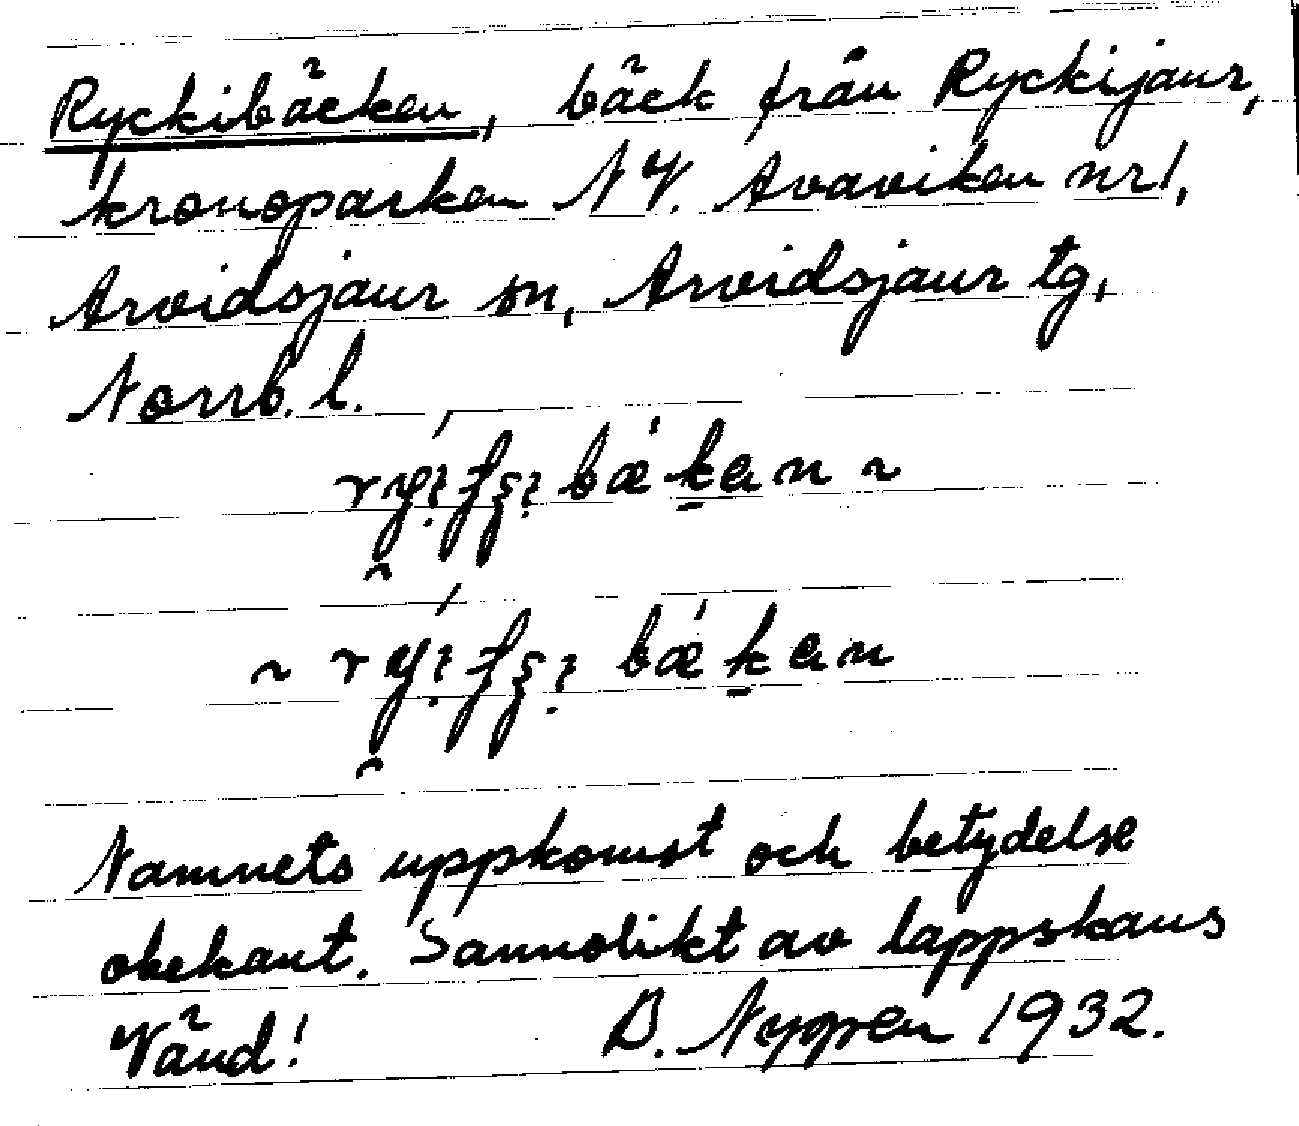 Ryckibäcken, bäck från Ryckijaur,
kronoparken NV. Avaviken nr 1,
Arvidsjaur sn, Arvidsjaur tg,
Norrb. l.
Namnets uppkomst och betydelse
obekant. Sannolikt av lappskans
Vänd! D. Nyppen 1932.